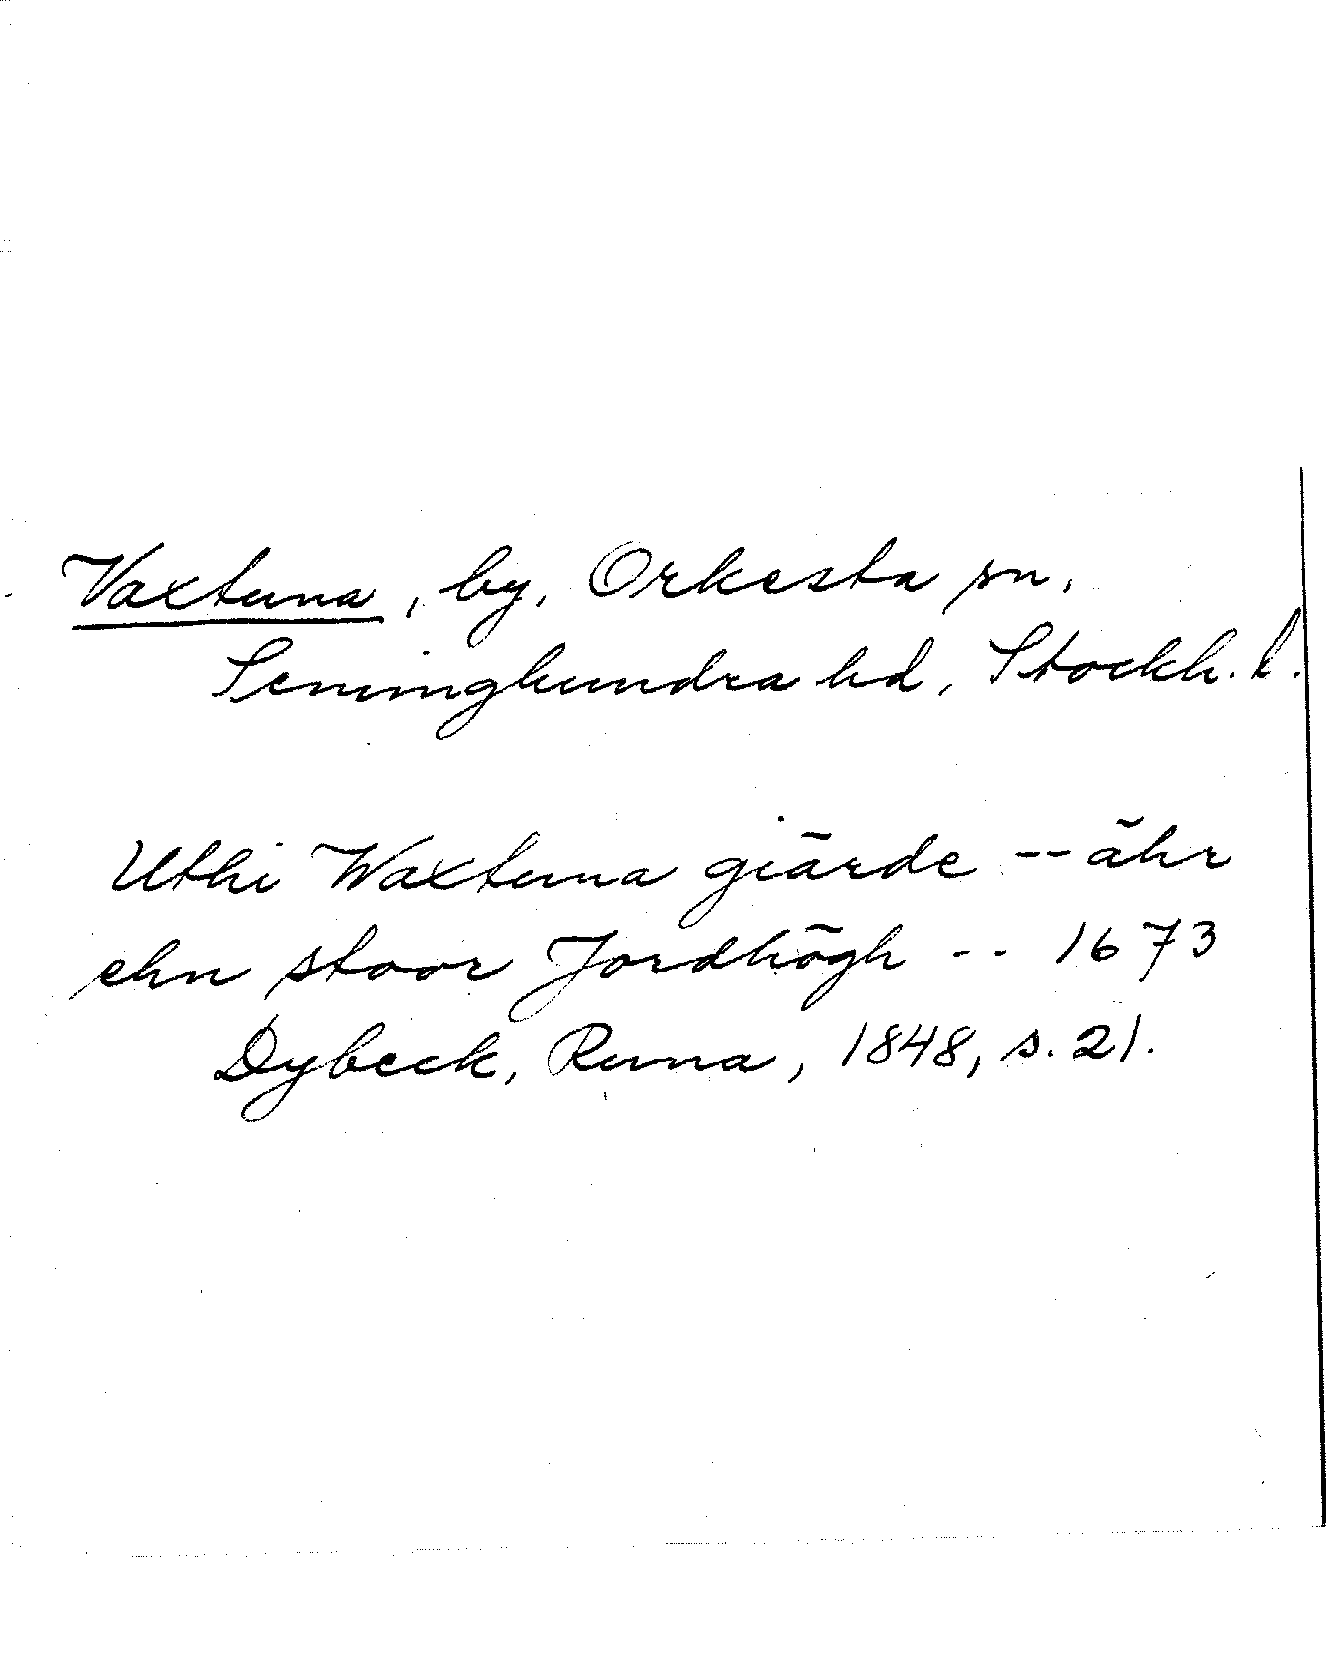 Vaxtuna, by, Orkesta sn,
Seminghundra hd, Stockh. l.
Uthi Waxtuna giärde -- ähr
ehn stoor Jordhögh -- 1673
Dybeck, Runa, 1848, s. 21.